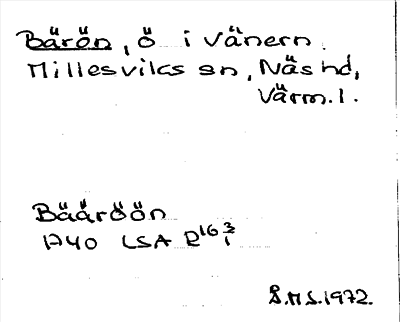 Bärön, ö i Vänern.
Millesviks sn, Näs hd,
Värm. l.
Bääröön
1740 LSA R16 3/1
S.M.S. 1972.